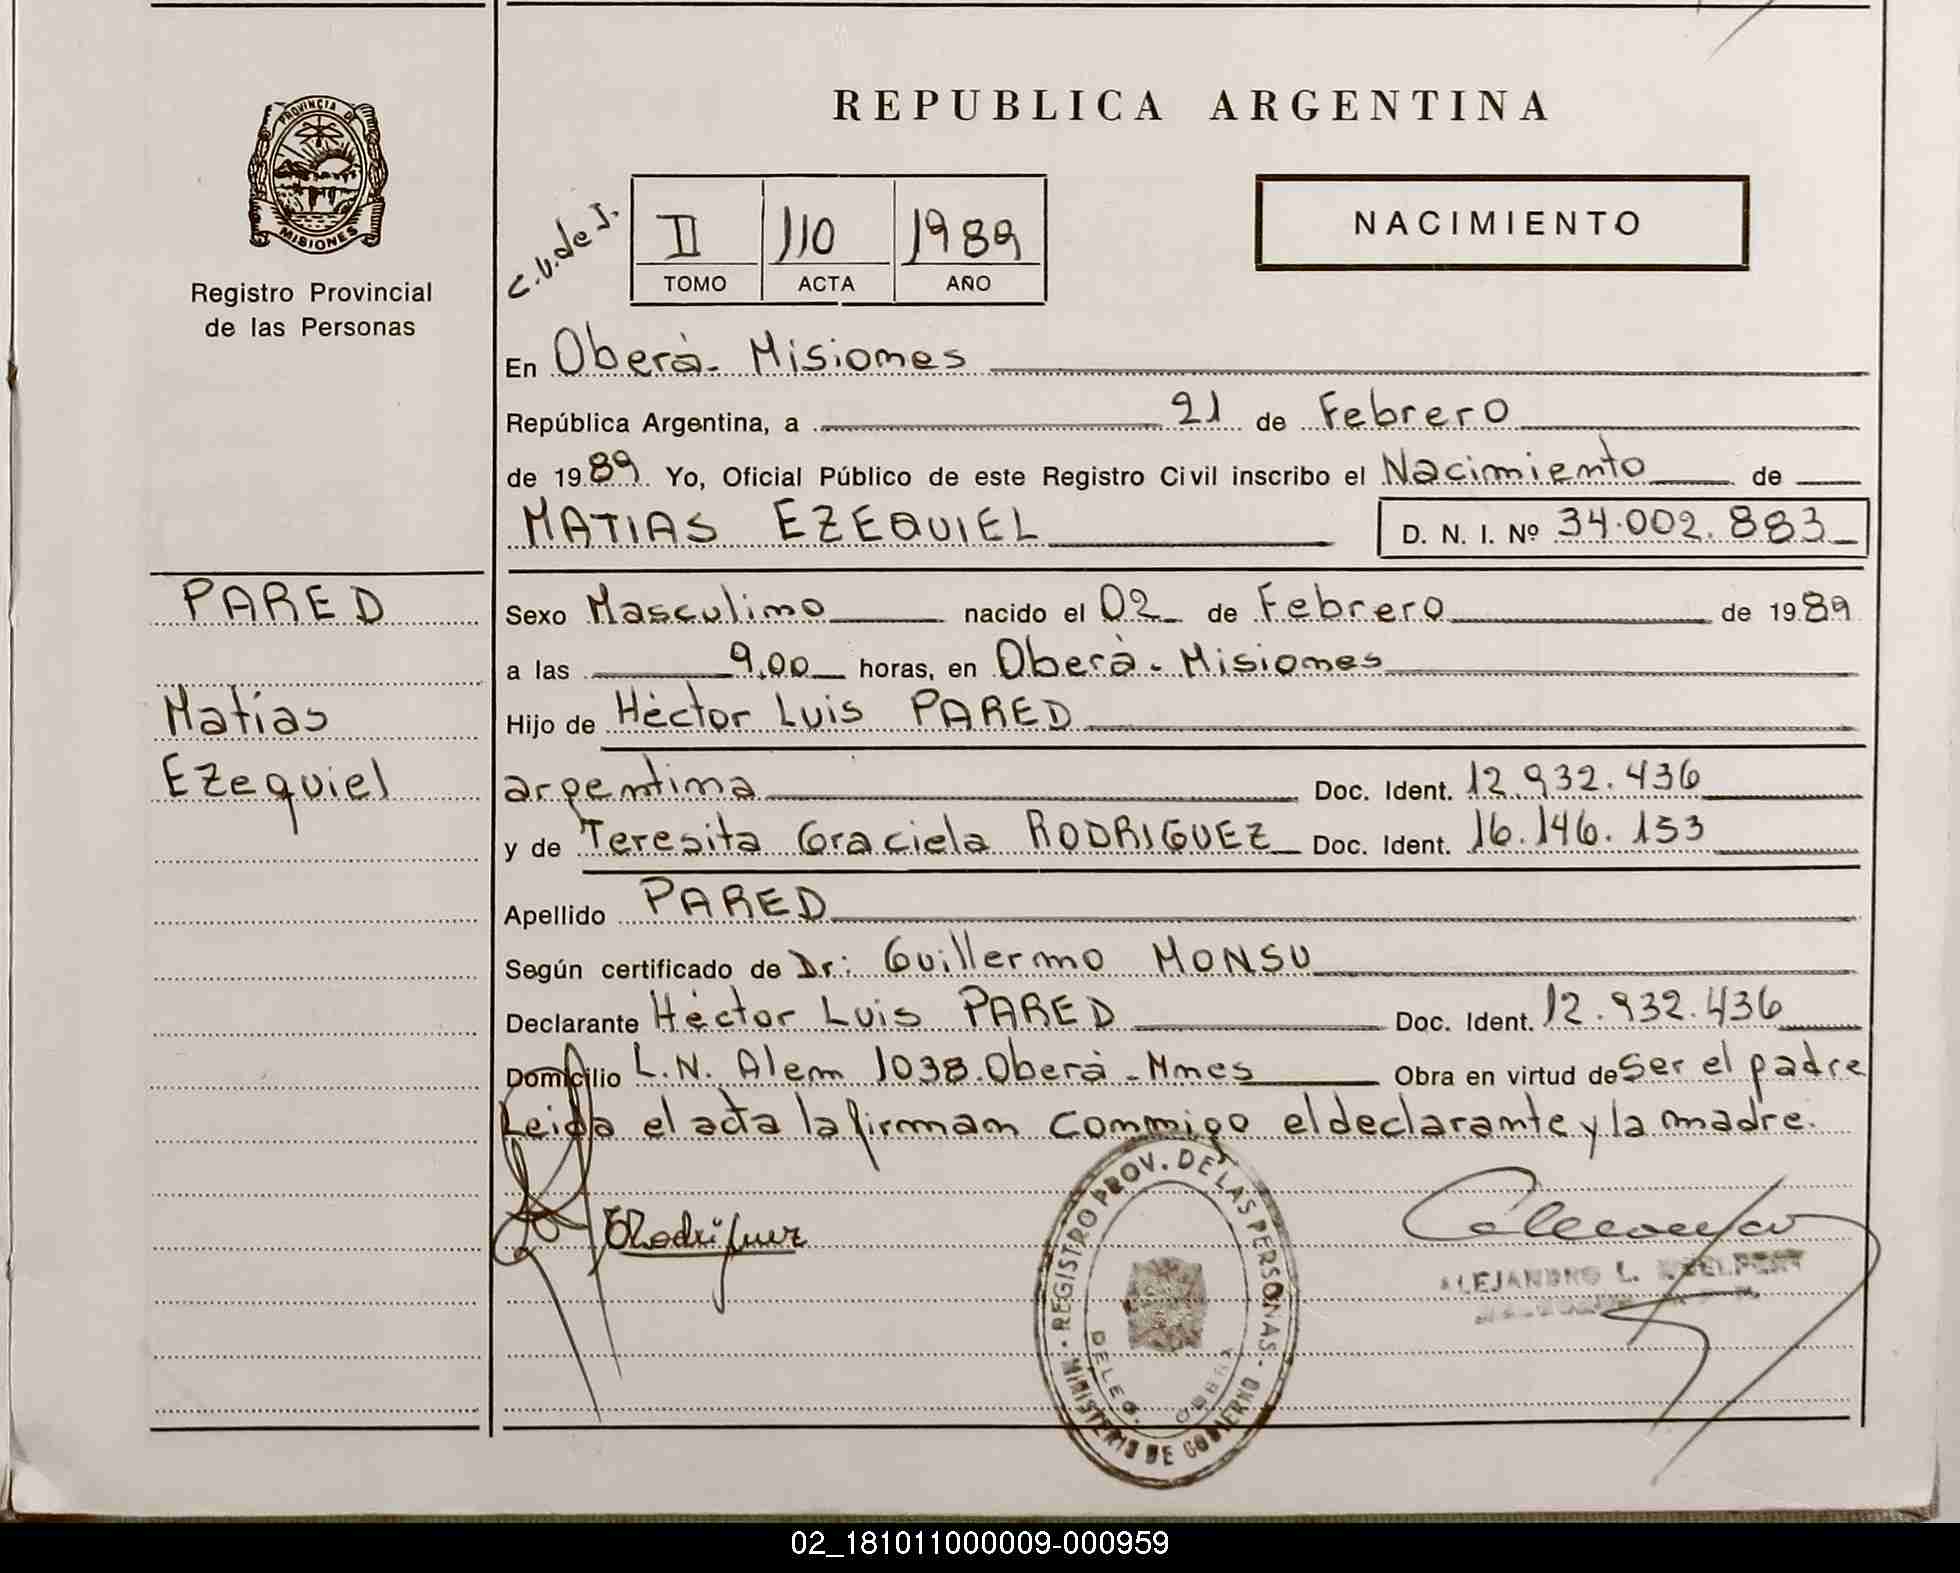 REPUBLICA ARGENTINA
PROVINCIA D
MISIONES
Registro Provincial
de las Personas
C.V. de J.
II 110 1989
TOMO ACTA AÑO
NACIMIENTO
En Oberá - Misiones
República Argentina, a 21 de Febrero
de 1989 Yo, Oficial Público de este Registro Civil inscribo el Nacimiento de
MATIAS EZEQUIEL D. N. I. Nº 34.002.883
PARED
Matías
Ezequiel
Sexo Masculino nacido el 02 de Febrero de 1989
a las 9,00 horas, en Oberá - Misiones
Hijo de Héctor Luis PARED
argentina Doc. Ident. 12.932.436
y de Teresita Graciela RODRIGUEZ Doc. Ident. 16.146.153
Apellido PARED
Según certificado de Dr: Guillermo MONSU
Declarante Héctor Luis PARED Doc. Ident. 12.932.436
Domicilio L.N. Alem 1038. Oberá - Mnes Obra en virtud de Ser el padre
Leida el acta la firman conmigo el declarante y la madre.
Rodriguez
REGISTRO PROV. DE LAS PERSONAS - MINISTERIO DE GOBIERNO
DELEG.
ALEJANDRO L.
02_181011000009-000959